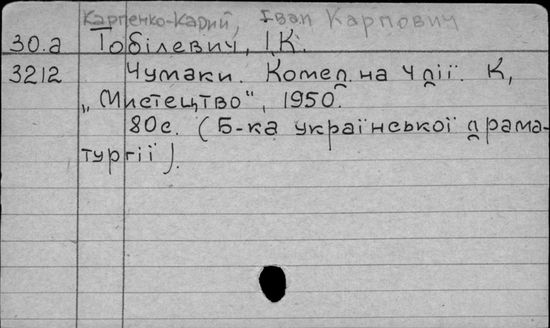 Карпенко-Карий, Іван Карпович
30.а Тобілевич, І.К.
3212 Чумаки. Комед. на 4 дії. К,
„Мистецтво", 1950.
80с. (Б-ка української драма-
тургії).